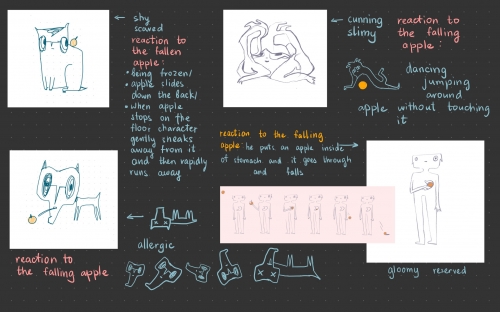 shy
scared
reaction to
the fallen
apple:
being frozen/
apple slides
down the back/
when apple
stops on the
floor character
gently sneaks
away from it
and then rapidly
runs away
cunning
slimy
reaction to
the falling
apple:
dancing
jumping
around
apple without touching
it
reaction to the falling
apple: he puts an apple inside
of stomach and it goes through
and falls
gloomy reserved
allergic
reaction to
the falling apple